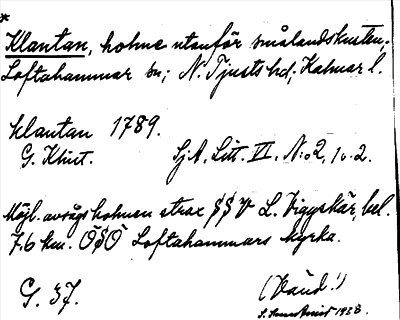 *
Klantan, holme utanför smålandskusten;
Loftahammar sn; N. Tjusts hd; Kalmar l.
klantan 1789.
G. Klint. Sj.A. Litt. VI. N:o 2, 1 o. 2.
Möjl. avsågs holmen strax S§V L. Viggskär, bel.
7.6 km. ÖSÖ Loftahammars kyrka.
G. 37. (Vånd!)
1938.